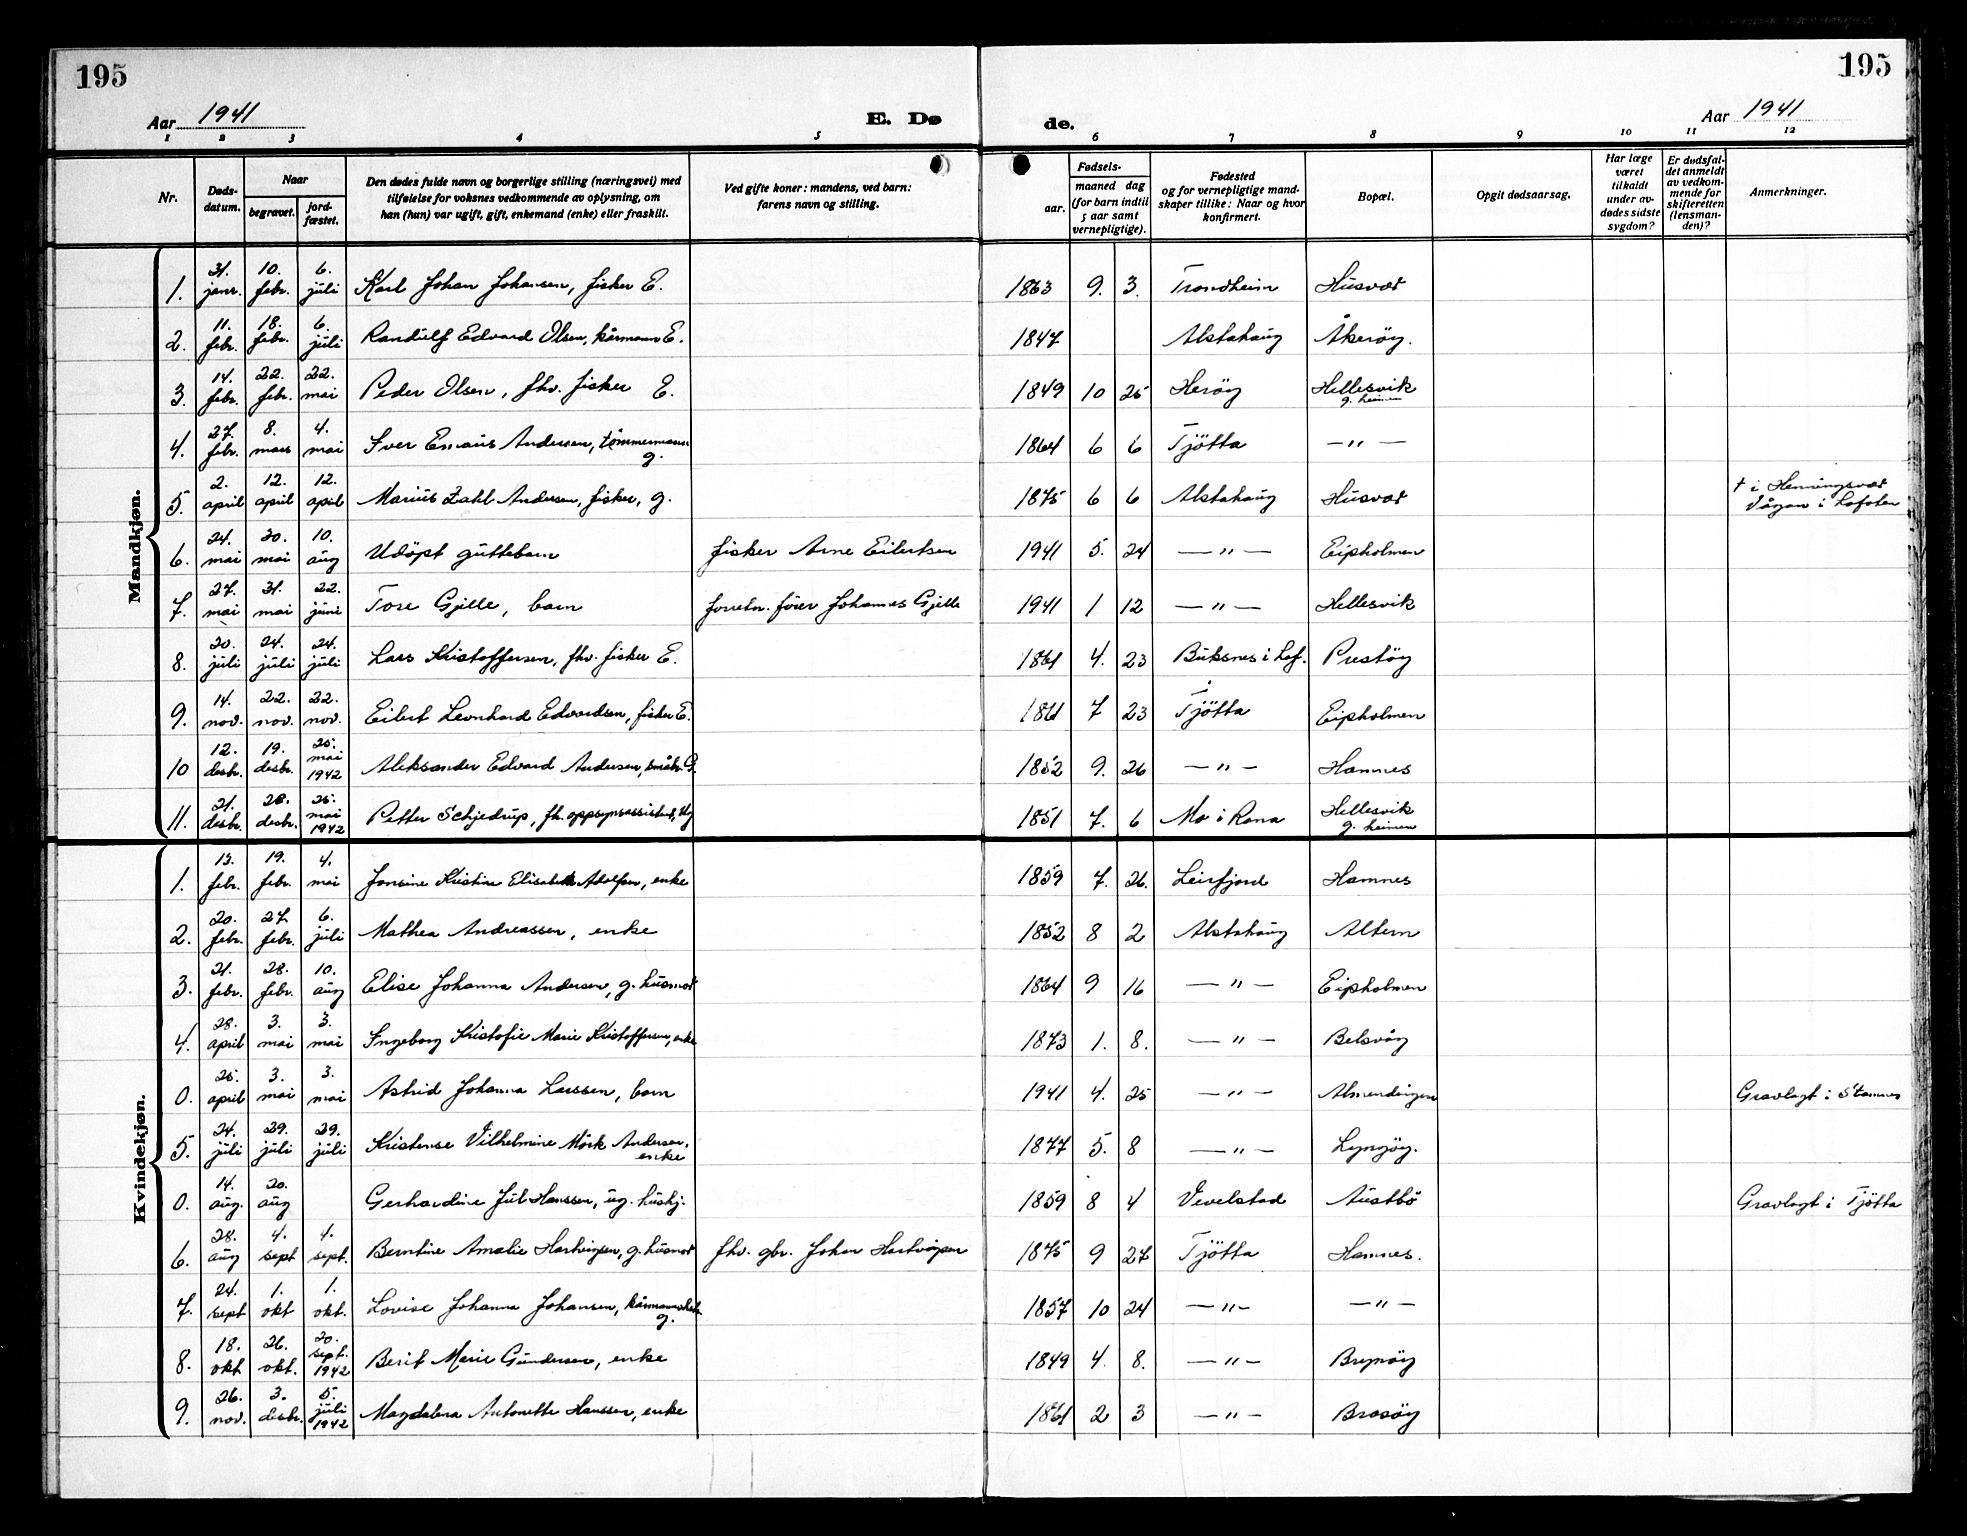 195 195
Aar 1941 E. Dø de. Aar 1941
1 2 3 4 5 6 7 8 9 10 11 12
Nr. Døds-datum. Naar begravet. jord-fæstet. Den dødes fulde navn og borgerlige stilling (næringsvei) med tilføielse for voksnes vedkommende av oplysning, om han (hun) var ugift, gift, enkemand (enke) eller fraskilt. Ved gifte koner: mandens, ved barn: farens navn og stilling. Fødsels- aar. maaned dag (for barn indtil 5 aar samt vernepligtige). Fødested og for vernepligtige mand-skaper tillike: Naar og hvor konfirmert. Bopæl. Opgit dødsaarsag. Har læge været tilkaldt under av-dødes sidste sygdom? Er dødsfal-det anmeldt av vedkom-mende for skifteretten (lensman-den)? Anmerkninger.
Mandkjøn.
1. 31. janr. 10. febr. 6. juli Karl Johan Johansen, fisker E. 1863 9. 3. Trondheim Husvær
2. 11. febr. 18. febr. 6. juli Randulf Edvard Olsen, kårmann E. 1847 Alstahaug Åkerøy.
3. 14. febr. 22. febr. 22. mai Peder Olsen, fhv. fisker E. 1849 10 25 Herøy Hellesvik g. heimen
4. 27. febr. 8. mars 4. mai Iver Emaus Andersen, tømmermann g. 1864 6 6 Tjötta —"—
5. 2. april 12. april 12. april Marius Zahl Andersen, fisker, g. 1875 6 6 Alstahaug Husvær † i Henningsvær Vågan i Lofoten
6. 24. mai 30. mai 10. aug Udöpt guttebarn fisker Arne Eilertsen 1941 5. 24 —"— Eipholmen
7. 27. mai 31. mai 22. juni Tore Gjelle, barn forretn. fører Johannes Gjelle 1941 1 12 —"— Hellesvik
8. 20. juli 24. juli 24. juli Lars Kristoffersen, fhv. fisker E. 1861 4. 23 Buksnes i Lof. Prestøy
9. 14. nov. 22. nov. 22. nov. Eilert Leonhard Edvardsen, fisker E. 1861 7 23 Tjötta Eipholmen
10 12. desbr. 19. desbr. 25. mai 1942 Aleksander Edvard Andersen, småbr. G. 1852 9. 26 —"— Hamnes
11. 21. desbr. 28. desbr. 25. mai 1942 Petter Schjedrup, fh. oppsynsassistent, Ug 1851 7. 6 Mo i Rana Hellesvik g. heimen
Kvindekjøn.
1. 13. febr. 19. febr. 4. mai Jonsine Kristine Elisabeth Adolfsen, enke 1859 7. 26. Leirfjord Hamnes
2. 20. febr. 27 febr. 6. juli Mathea Andreassen, enke 1852 8 2 Alstahaug Altern
3. 21. febr. 28. febr. 10. aug Elise Johanna Andersen, g. husmor 1864 9 16 —"— Eipholmen
4. 28. april 3. mai 3. mai Ingeborg Kristofie Marie Kristoffersen, enke 1873 1. 8. —"— Belsvåg
0. 25. april 3. mai 3. mai Astrid Johanna Larssen, barn 1941 4. 25 —"— Almendingen Gravlagt i Stamnes
5. 24. juli 29. juli 29. juli Kristense Vilhelmine Mörk Andersen, enke 1877 5. 8 —"— Lyngøy.
0. 14. aug. 20. aug Gerhardine Jul Hanssen, ug. hushj. 1859 8 4 Vevelstad Austbö Gravlagt i Tjötta
6. 28. aug 4. sept 4. sept. Berntine Amalie Hartvigsen, g. husmor fhv. gbr. Johan Hartvigsen 1875 9 27 Tjötta Hamnes.
7. 24. sept 1. okt 1. okt. Lovise Johanna Johansen, g. 1857 10 24 —"— —"—
8. 18. okt 26. okt. 20. sept. 1942 Berit Marie Gundersen, enke 1849 4. 8. —"— Brynøy
9. 26. nov. 3. desbr. 5. juli 1942 Magdalena Antonette Hanssen, enke 1861 2 3 —"— Brasøy